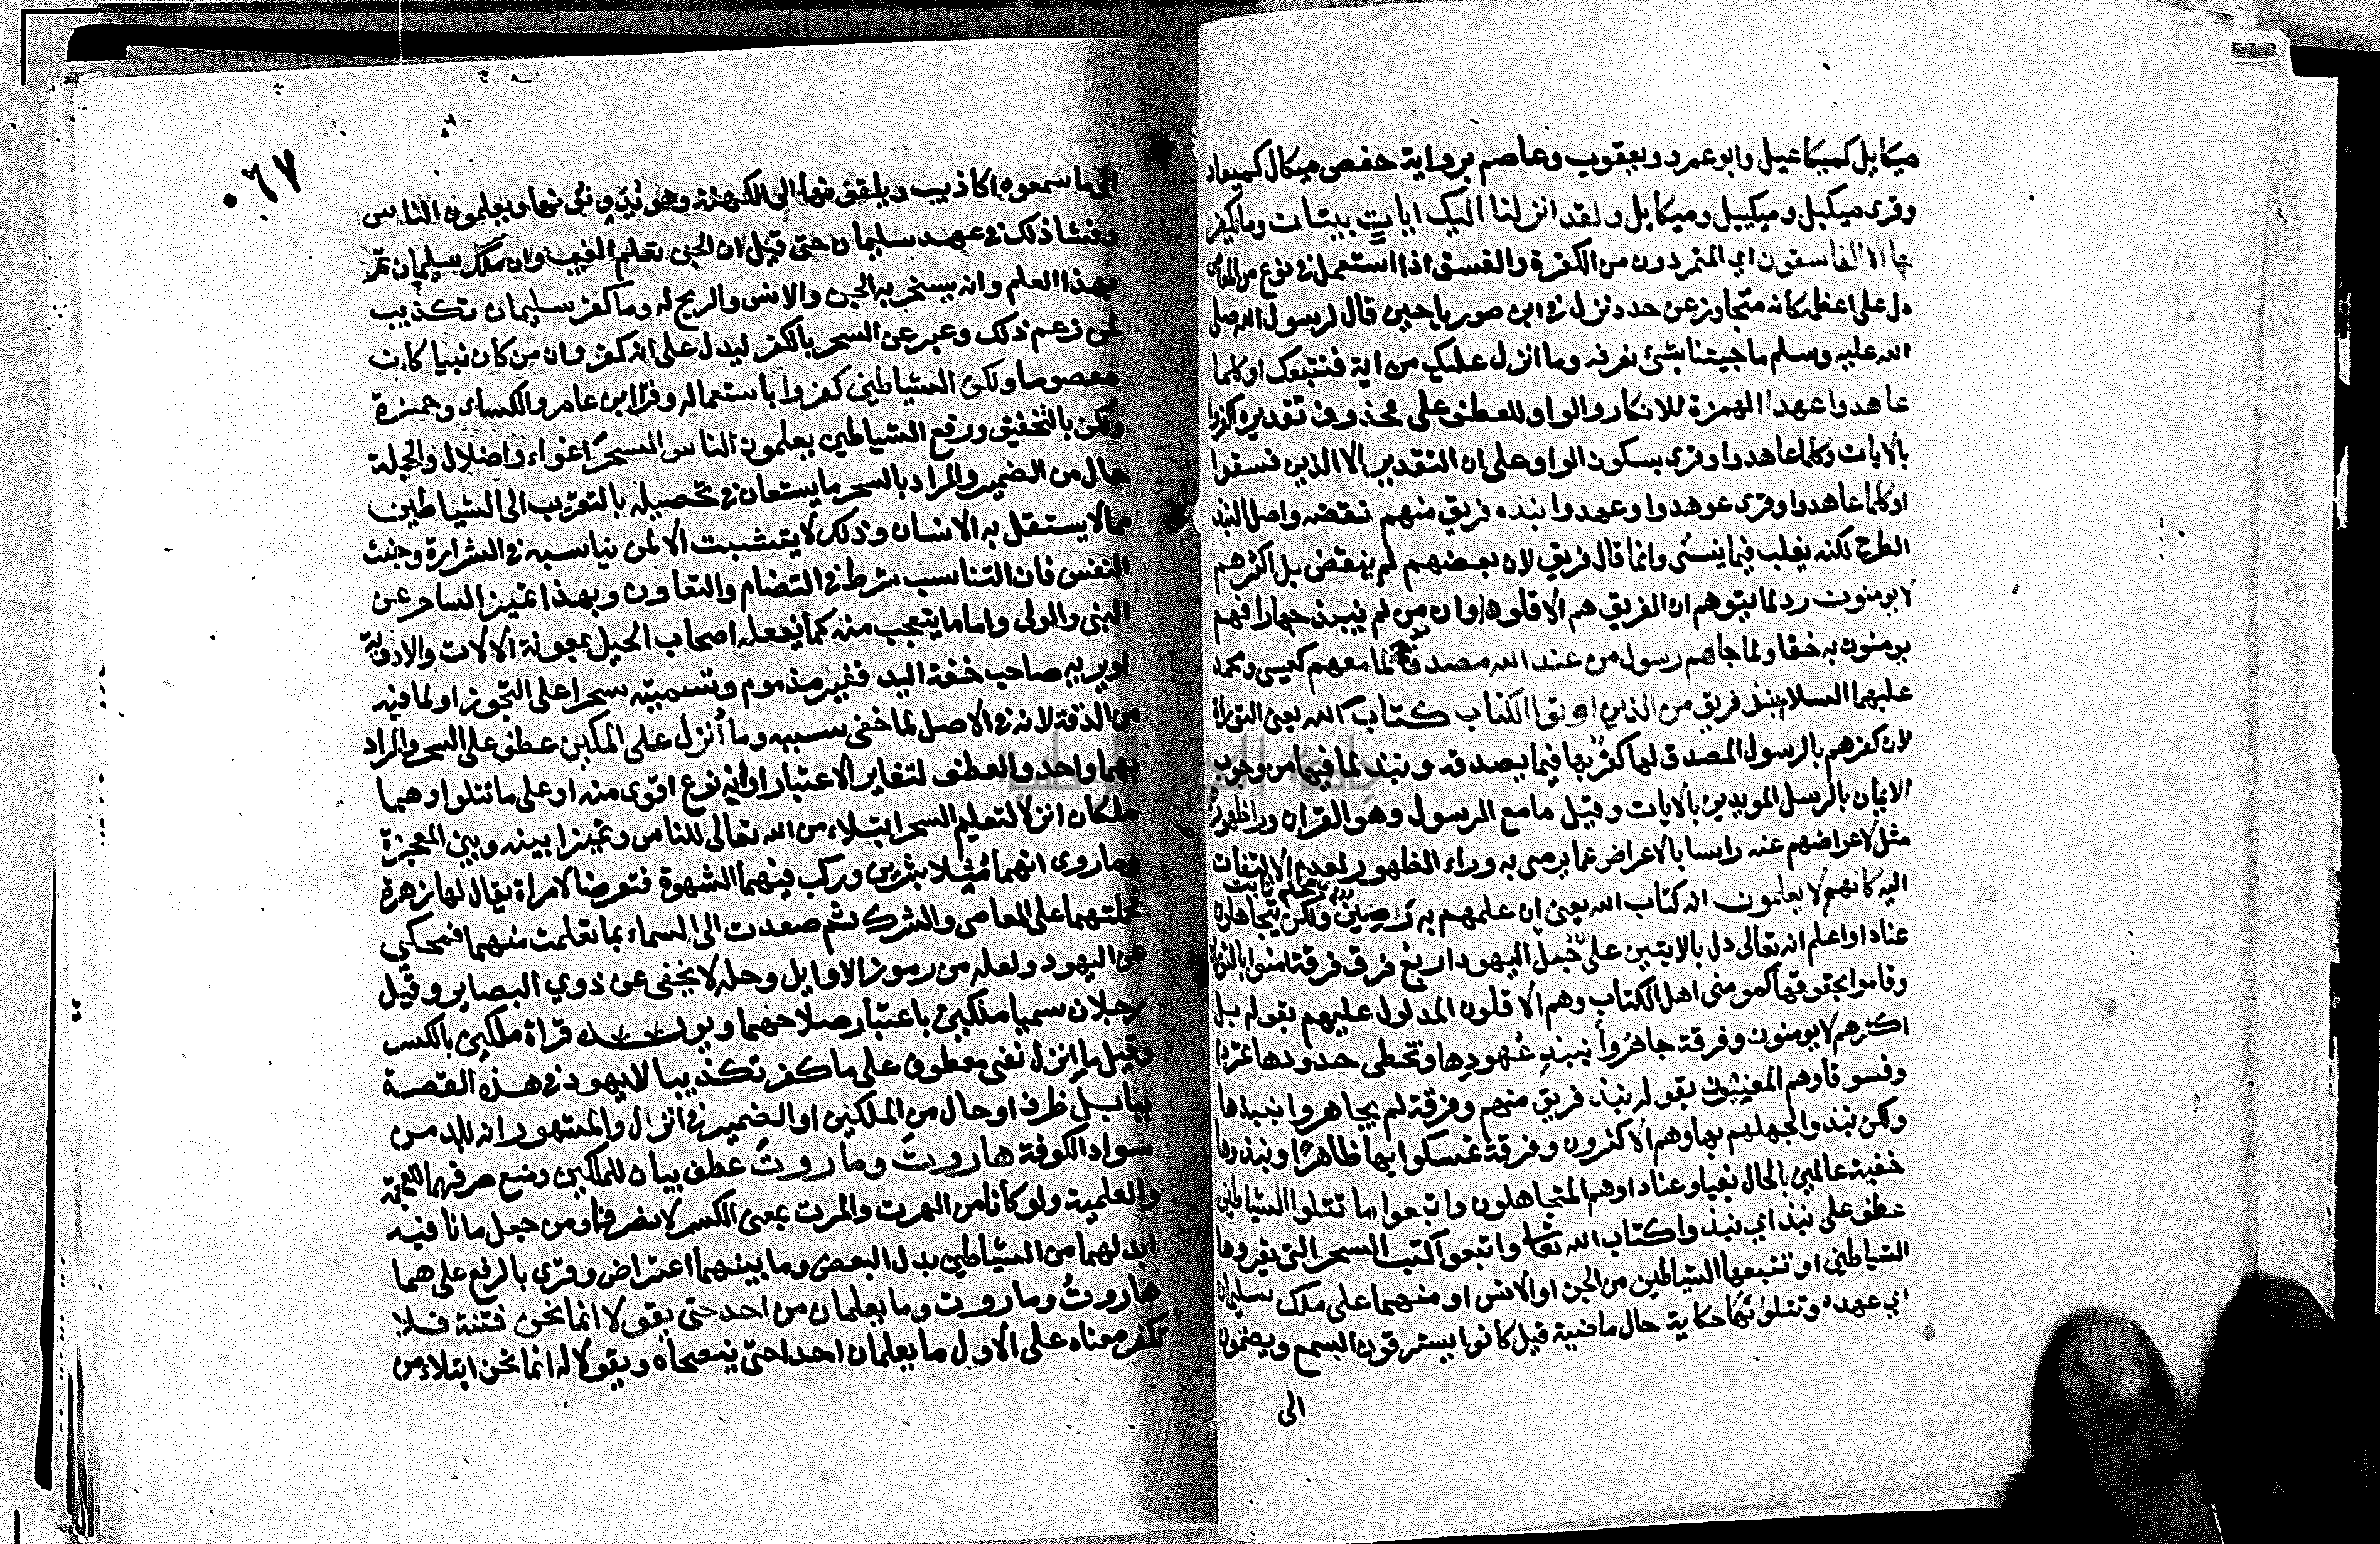 ميكايل كميكاعيل وابو عمرو ويعقوب وعاصم برواية حفص ميكال كميعاد
وقرى ميكيل وميكييل وميكايل ولقد انزلنا اليك ايات بينات وما يكفر
بها الا الفاسقون اي المتمردون من الكفرة والفسق اذا استعمل في نوع من المعاصي
دل على اعظمه كانه متجاوز عن حده نزل في ابن صوريا حين قال لرسول الله صلى
الله عليه وسلم ما جيتنا بشئ نعرفه وما انزل عليك من اية فنتبعك او كلما
عاهدوا عهدا الهمزة للانكار والواو للعطف على محذوف تقديره اكفروا
بالايات وكلما عاهدوا وقرى بسكون الواو على ان التقدير الا الذين فسقوا
او كلما عاهدوا وقرى عوهدوا وعهدوا نبذه فريق منهم نقضه واصل النبذ
الطرح لكنه يغلب فيما ينسى وانما قال فريق لان بعضهم لم ينقض بل اكثرهم
لا يومنون رد لما يتوهم ان الفريق هم الاقلون او ان من لم ينبذ جهارا فهم
يومنون به خفا ولما جاهم رسول من عند الله مصدق لما معهم كعيسى ومحمد
عليهما السلام نبذ فريق من الذين اوتوا الكتاب كتاب الله يعني التوراة
لان كفرهم بالرسول المصدق لها كفر بها فيما يصدقه ونبذ لما فيها من وجوب
الايمان بالرسل المويدين بالايات وقيل ما مع الرسول وهو القران ورا ظهورهم
مثل لاعراضهم عنه راسا بالاعراض عما يرمى به وراء الظهور لعدم الالتفات
اليه كانهم لا يعلمون انه كتاب الله يعني ان علمهم به رصين ولكن يتجاهلون
عنادا واعلم انه تعالى دل بالايتين على جيل اليهود اربع فرق فرقة امنوا بالتوراة
وقاموا بحقوقها كمومنى اهل الكتاب وهم الاقلون المدلول عليهم بقوله بل
اكثرهم لا يومنون وفرقة جاهروا بنبذ عهودها وتخطى حدودها تمردا
وفسوقا وهم المعنيون بقوله نبذ فريق منهم وفرقة لم يجاهروا بنبذها
ولكن نبذوا لجهلهم بها وهم الاكثرون وفرقة تمسكوا بها ظاهرا ونبذوها
خفية عالمين بالحال بغيا وعنادا وهم المتجاهلون واتبعوا ما تتلوا الشياطين
عطف على نبذ اي نبذوا كتاب الله تعا واتبعوا كتب السحر التى يقروها
الشياطين او تتبعها الشياطين من الجن او الانس او منهما على ملك سليمان
اي عهده وتتلوا حكاية حال ماضية قيل كانوا يسترقون السمع ويضمون
الى
٠٦٧
الى ما سمعوه اكاذيب ويلقونها الى الكهنة وهو يدونونها ويعلمون الناس
وفشا ذلك في عهد سليمان حتى قيل ان الجن تعلم الغيب وان ملك سليمان تم
بهذا العلم وانه يسخر به الجن والانس والريح له وما كفر سليمان تكذيب
لمن زعم ذلك وعبر عن السحر بالكفر ليدل على انه كفر وان من كان نبيا كان
معصوما ولكن الشياطين كفروا باستعماله وقرا ابن عامر والكساى وحمزة
ولكن بالتخفيف ورفع الشياطين يعلمون الناس السحر اغواء واضلالا والجملة
حال من الضمير والمراد بالسحر ما يستعان في تحصيله بالتقرب الى الشياطين
مما لا يستقل به الانسان وذلك لا يتشبت الا لمن يناسبه في الشرارة وخبث
النفس فان التناسب شرط في التضام والتعاون وبهذا تميز الساحر عن
النبى والولى واما ما يتعجب منه كما يفعله اصحاب الحيل بمعونة الالات والادوية
او يريه صاحب خفة اليد فغير مذموم وتسميته سحرا على التجوز او لما فيه
من الدقة لانه في الاصل لما خفى سببه وما أنزل على الملكين عطف على السحر والمراد
بهما واحد والعطف لتغاير الاعتبار او انه نوع اقوى منه او على ما تتلوا وهما
ملكان انزلا لتعليم السحر ابتلاء من الله تعالى للناس وتميزا بينه وبين المعجزة
وما روى انهما مثلا بشرين وركب فيهما الشهوة فتعرضا لامراة يقال لها زهرة
فحملتهما على المعاصى والشرك ثم صعدت الى السماء بما تعلمت منهما فمحكي
عن اليهود ولعله من رموز الاوايل وحله لا يخفى عن ذوي البصاير وقيل
رجلان سميا ملكين باعتبار صلاحهما ويويده قراة ملكين بالكسر
وقيل ما انزل نفى معطوف على ما كفر تكذيبا لليهود في هذه القصة
ببابل ظرف او حال من الملكين او الضمير في انزل والمشهور انه بلد من
سواد الكوفة هاروت وماروت عطف بيان للملكين ومنع صرفهما للعجمة
والعلمية ولو كانا من الهرت والمرت بمعنى الكسر لانصرفا ومن جعل ما نافية
ابدلهما من الشياطين بدل البعض وما بينهما اعتراض وقرى بالرفع على هما
هاروت وماروت وما يعلمان من احد حتى يقولا انما نحن فتنة فلا
تكفر معناه على الاول ما يعلمان احدا حتى ينصحاه ويقولا له انما نحن ابتلاء من